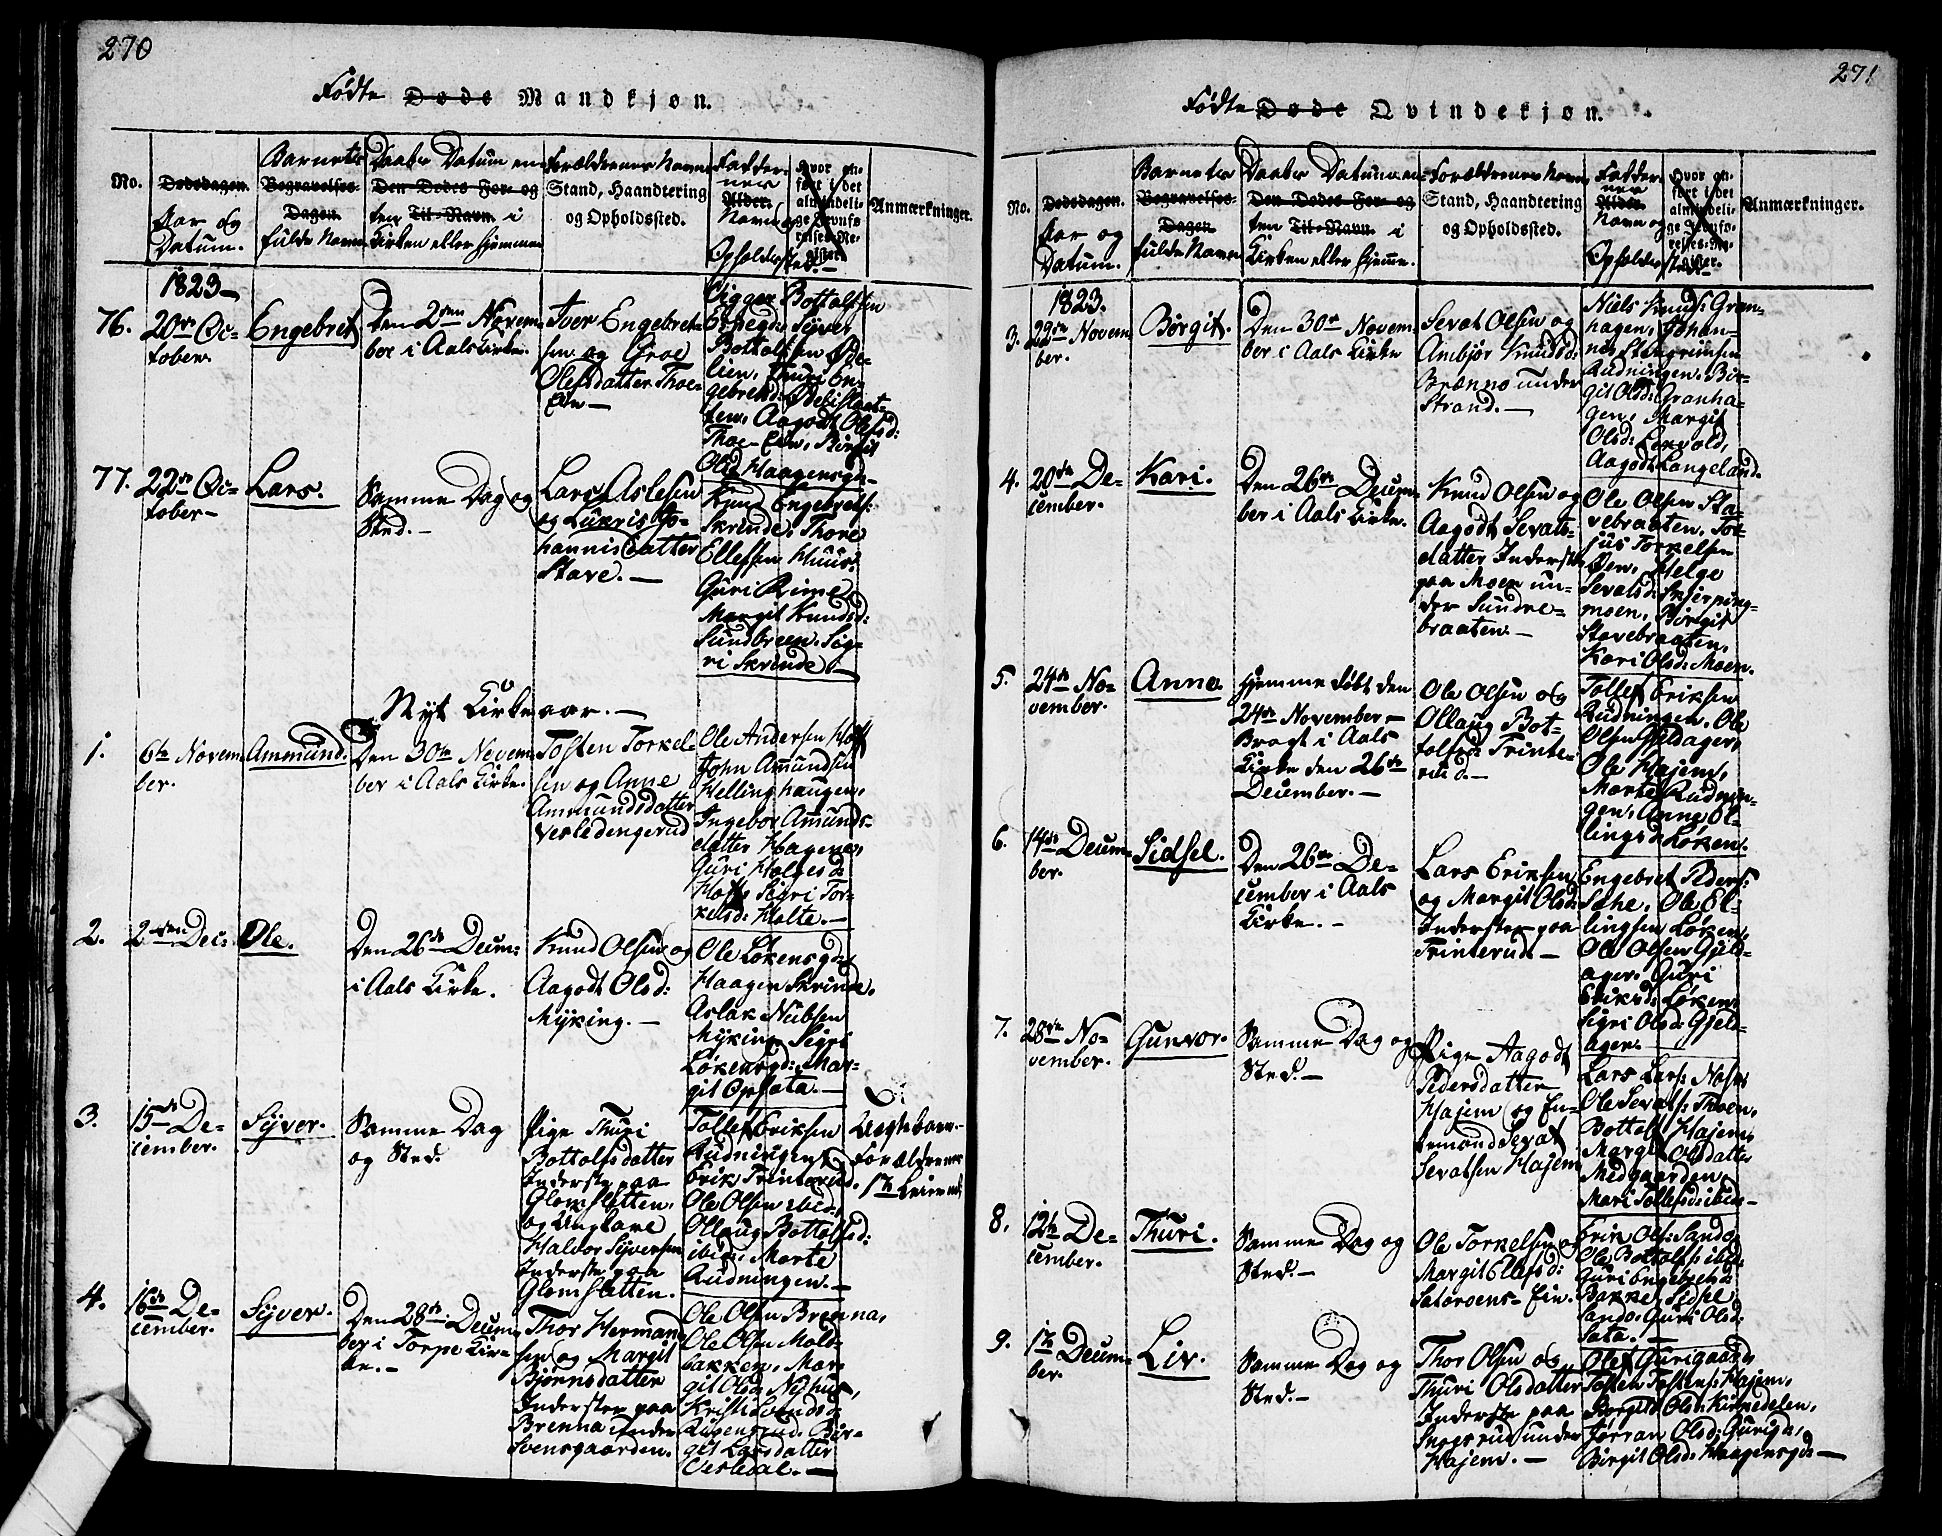 270
Fødte Døde Mandkjøn.
No.
Dødsdagen.
Aar og
Datum.
Barnets
Begravelses-
Dagen.
fulde Navn
Daabs Datum en-
Den Dødes For- og
ten Til-Navn i
Kirken eller hjemme
Forældrenes Navn
Stand, Haandtering
og Opholdssted.
Fadder-
nes
Alder.
Navn og
Opholdssted.
Hvor an-
ført i det
almindeli-
ge Jevnfø-
relses-Re-
gister.
Anmærkninger.
1823
76.
20de Oc-
tober.
Engebret
Den 2den Novem-
ber i Aals Kirke.
Iver Engebret-
sen og Groe
Olefsdatter Thoe-
Eie
Sigger Bottolfsen
Sÿver
Bottolfsen
Thuri En-
gebretsd:
Aagodt Olefsd:
Thoe-Eie, Birgit
Olsd: Haagensgd.
77.
22de Oc-
tober
Lars.
Samme Dag og
Sted.
Lars Aslesen
og Lükris Jo-
hannisdatter
Stave.
Knud Engebrets:
Skrinde, Thore
Ellefsen Huus,
Guri Rime,
Margit Knudsd:
Sundbreen, Sig-
ri Skrinde.
Nyt Kirkeaar.
1.
6te Novem-
ber.
Ammund.
Den 30te Novem-
ber i Aals Kirke.
Tosten Torkel-
sen og Anne
Ammundsdatter
Vesledengerud
Ole Andersen Hoff
John Amundsen
Hellinghaugen,
Ingebor Amunds-
datter Hagene,
Guri Holgesd:
Hoff, Sigri Tor-
kelsd: Holte.
2.
2den Dec:
Ole.
Den 26de Decem:
i Aals Kirke.
Knud Olsen og
Aagodt Olsd:
Myking.
Ole Løkensgd,
Haagen Skrinde,
Aslak Nubsen
Myking, Sigri
Løkensgd:, Mar-
git Opsata.
3.
15de De-
cember.
Syver.
Samme Dag
og Sted.
Pige Thuri
Bottolfsdatter
Inderste paa
Glomsletten,
og Ungkare
Haldor Syversen
Inderste paa
Glomsletten.
Tollef Eriksen
Rudningen,
Erik Trinterud,
Ole Olsen ibid:,
Ollaug Bottolfsd:
ibid:, Marte
Rudningen.
Uægte barn
Forældrenes
1te Leierm:
4.
16de De-
cember.
Syver.
Den 28de Decem-
ber i Torpe Kir-
ke.
Thor Herman-
sen og Margit
Bjørnsdatter
Inderster paa
Brenna under
Svensgaarden.
Ole Olsen Brenna,
Ole Olsen Molt-
bakken, Mar-
git Olsd: Nyhus,
Kristi Svendsd:
Birgit Larsdatter
Vesledal.
271
Fødte Døde Qvindekjøn.
No.
Dødsdagen.
Aar og
Datum.
Barnets
Begravelses-
Dagen.
fulde Navn
Daabs Datum en-
Den Dødes For- og
ten Til-Navn i
Kirken eller hjemme.
Forældrenes Navn
Stand, Haandtering
og Opholdssted.
Fadder-
nes
Alder
Navn og
Opholdssted
Hvor an-
ført i det
almindeli-
ge Jevnfø-
relses-Re-
gister.
Anmærkninger.
1823.
3.
22de Novem-
ber.
Børgit.
Den 30te Novem-
ber i Aals Kirke
Sevat Olsen og
Ambjør Knudsd:
Brenno under
Strand.
Niels Knuds: Gran-
hagen, Johan-
nis Stengrimsen
Rudningen, Bir-
git Olsd: Granha-
gen, Margit
Olsd: Leqvold,
Aagodt Langeland.
4.
20de De-
cember.
Kari.
Den 26de Decem-
ber i Aals Kirke.
Knud Olsen og
Aagodt Sevats-
datter Inderster
paa Moen un-
der Sundre-
braaten.
Ole Olsen Sta-
vebraaten, Tor-
jus Torkelsen
Øen, Helge
Sevatsd: Skjerping-
moen, Birgit
Stavebraaten,
Kari Olsd: Moen.
5.
24de No-
vember.
Anne
Hjemme døbt den
24de November
Bragt i Aals
Kirke den 26de
December.
Ole Olsen og
Ollaug Bot-
tolfsd: Trinte-
rud.
Tollef Eriksen
Rudningen, Ole
Olsen Gjeldager,
Ole Hajem,
Marte Rudnin-
gen, Anne Ol-
lingsd: Løken.
6.
14de Decem-
ber.
Sidsel.
Den 26de De-
cember i Aals
Kirke.
Lars Eriksen
og Margit Olsd:
Inderster paa
Trinterud.
Engebret Peders:
Sehe, Ole El-
lingsen Løken,
Ole Olsen Gjeld-
ager, Guri
Eriksd: Løken,
Sigri Olsd: Gjeld-
ager.
7.
28de No-
vember.
Gunvor.
Samme Dag og
Sted.
Pige Aagodt
Pedersdatter
Hajem og En-
kemand Sevat
Sevatsen Hajem
Lars Lars: Noss
Ole Sevats: Thoen,
Bottolf Hajem,
Margit Olsdatter
Midgaarden,
Mari Tollefsd: ibid:
8.
12te De-
cember.
Thuri.
Samme Dag og
Sted.
Ole Torkelsen og
Margit Olafsd:
Sataroens-Eie.
Erik Ols: Sando,
Ole Bottolfs: ibid:
Guri Engebretsd:
Bakke, Sidsel
Sando, Guri Olsd:
Sata.
9.
1te Decem-
ber.
Liv.
Samme Dag og
Sted.
Thor Olsen og
Thuri Olsdatter
Inderste paa
Snogsrud under
Hajem.
Olef Gurigaard,
Tosten Tostens: Hajem,
Olsen Kirkedelen,
Jørran Olsd: Gurigd,
Birgit Olsd: Haagensgd.